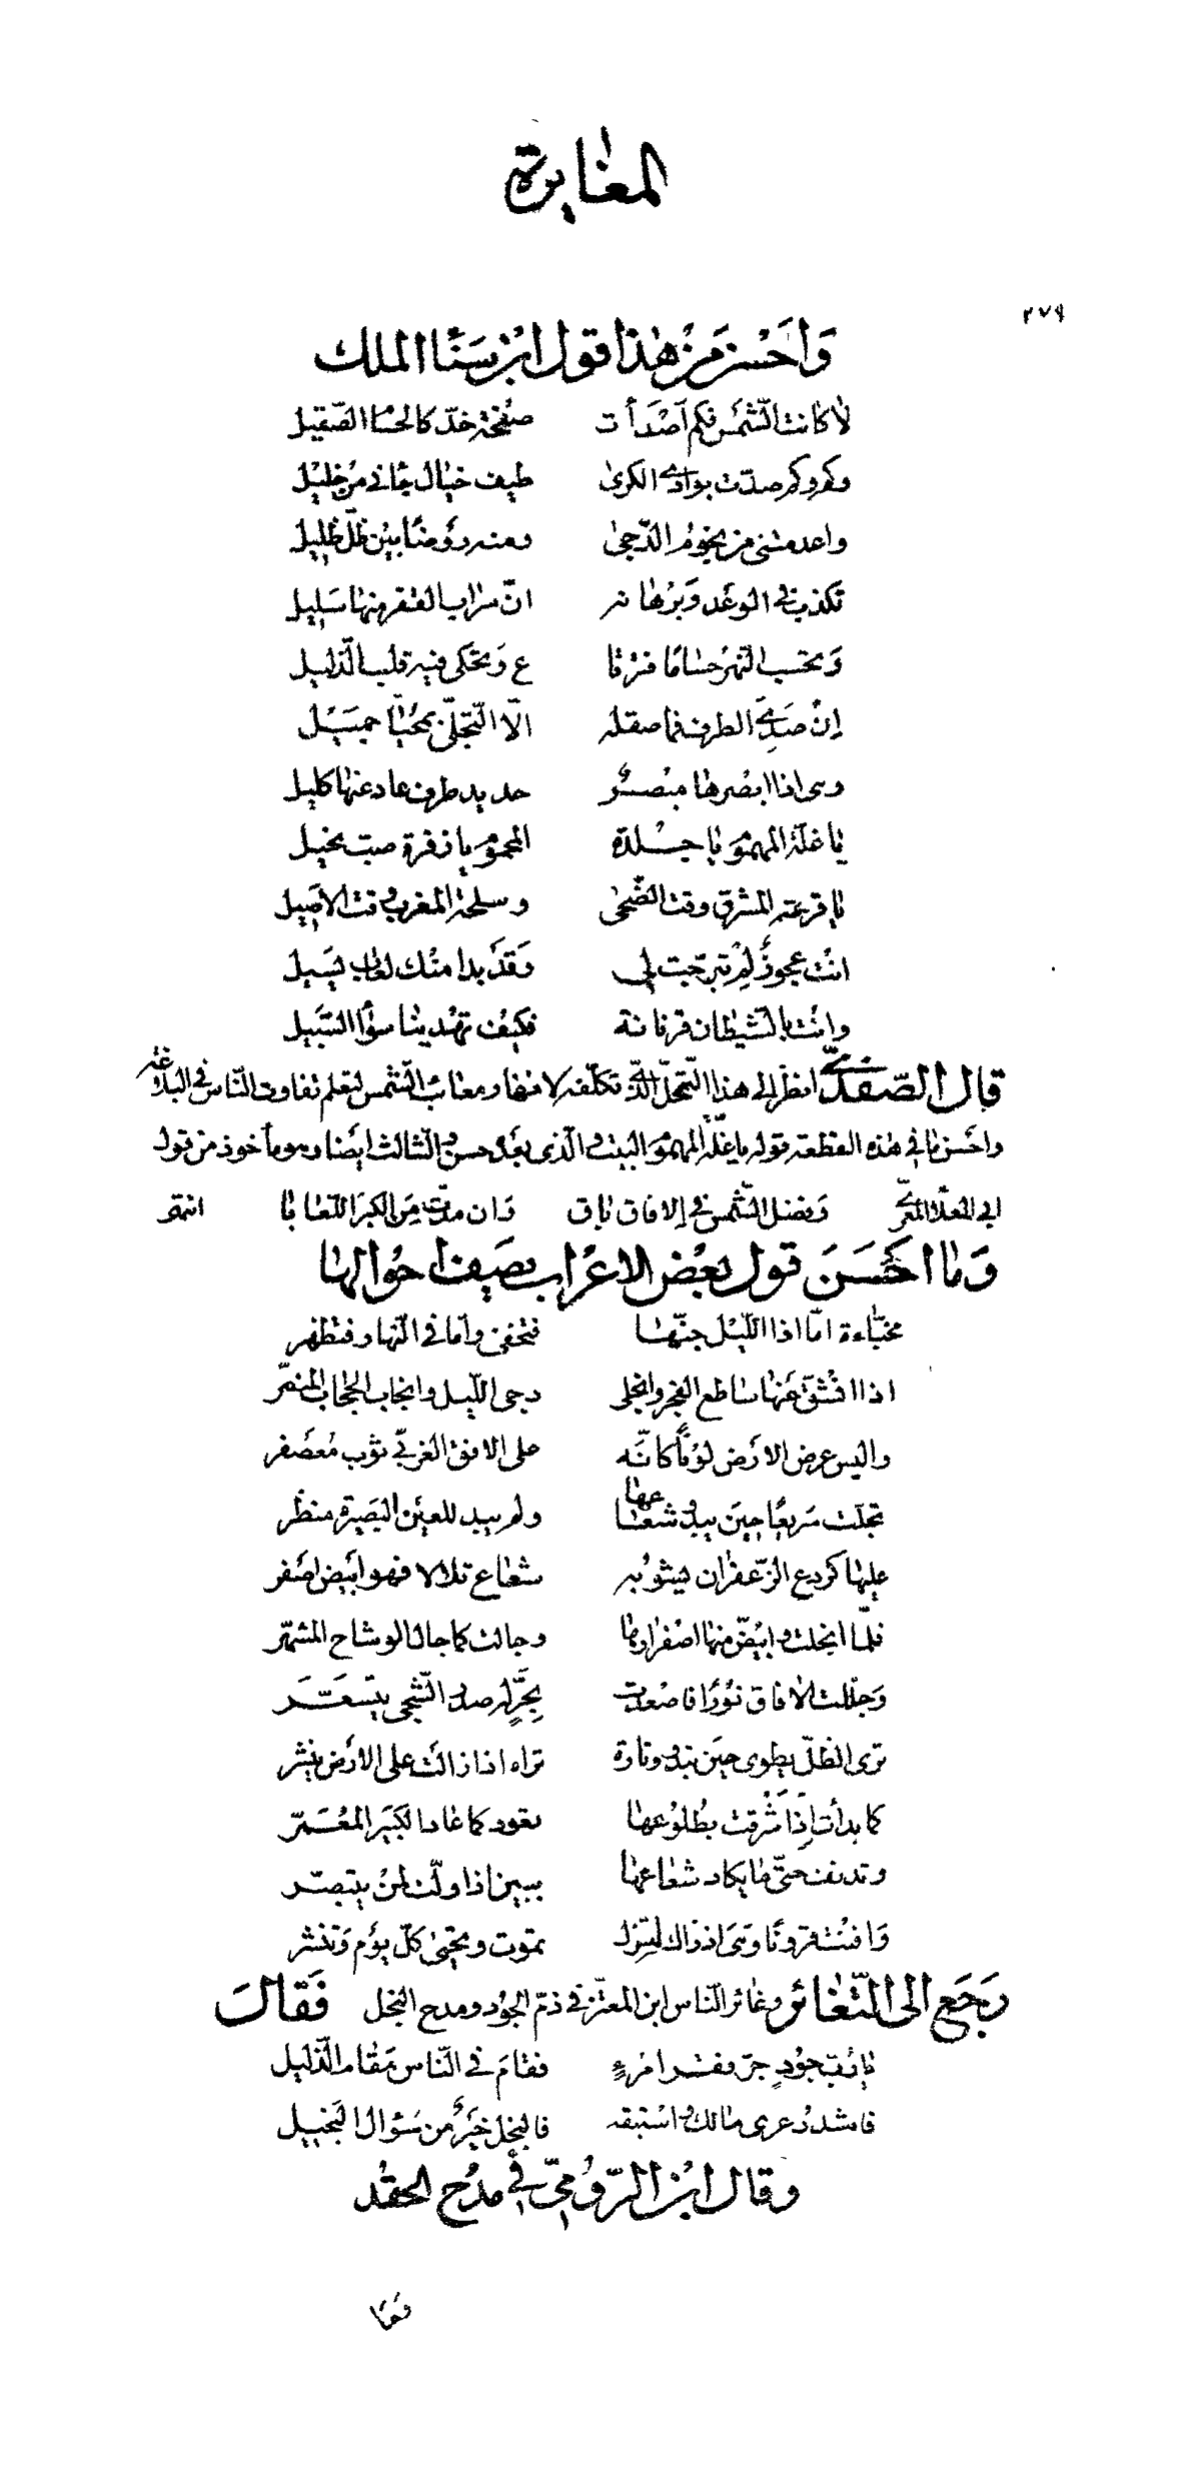 المغايرة
٢٧٩
وَاحَسْن مَنْ هٰذا قول ابْن سَنَا الملك
لا كانت الشمْس فكم اَصْدَأت صفْحَة خدّ كالحسَام الصّقيل
وكم وكم صدّت بوادى الكرىٰ طيف خيال جاني منْ خليْل
واعدمتنى من نجوم الدّجىٰ ومنه روْضًا بيْن ظلّ ظليل
تكذب في الوعْد وَبرْهانه انّ سراب القفر منها سَليل
وَتحسب النهْر حسٰامًا فترتا ع وَتحكى فيه قلب الذليل
إنْ صَدِئَ الطرف فما صقله الّا التّجلّى بمحيّا جميْل
وهى اذا ابصْرها مبْصرٌ حديد طرف عاد عنها كليل
يا غلّة المهمُوم يا جسْلدة المحموم يا زفرة صبّ نحيل
يا قرعة المشرق وقت الضّحىٰ وسلحة المغرب وقت الاصَيل
انْت عجوزٌ لِمْ تبرّجت لي وَقدْ بدا منْك لعاب يسَيل
وانْت بالشيطان قرنانة فكيْف تهْدينا سوْا السّبَيل
قال الصّفدىّ انظر إلى هذا التّحيّل الذى تكلّفه لاستهار معائب الشمس لتعلم تفاوت النّاس في البلاغة
واحْسن ما في هذه القطعة قوله يا غلّة المهمُوم البيْت والّذى بعْده حسن والثالث ايْضًا وهو مأخوذ من قول
ابى العلا المعرّىّ وَفضل الشّمس في الافاق باق وَان مدّت مِن الكبر اللّعابا انتهى
وَمٰا اَحْسَنَ قول بعْض الاعْراب يصَف احوْالها
مخبّاءة امّا اذا الليْل جنّها فتخفى وامّا في النّهار فتظهر
اذا انْشقّ عَنها ساطع الفجر وانجلى دجى اللّيل وانجاب الحجاب المنمّر
والبس عرض الارْض لوْنًا كانّه على الافق الغربّي ثوْب مُعصَفر
تجلّت سَريعًا حينَ يبدو شعاعها ولم يبد للعيْن البصَيرة منظر
عليها كردع الزّعفران يشوْبه شعاع تلالا فهو ابيَض اصْفر
فلمّا انجلت وابيْضّ منها اصْفرارها وجالت كما جال الوشاح المشهّر
وَجلّلت الافاق نوْرًا فاصْعدت بحَرٍّ له صدر الضّحى يتسَعّر
ترى الظلّ يطوى حيَن تبدو وتارة تراه اذا زالت على الارْض ينْشر
كما بدأت إذْ اشْرقت بطُلوْعها يعود كما عاد الكبَير المُعَمّر
وتدنف حتّى ما يكاد شعاعها يبين اذا ولّت لمنْ يتبصّر
وَافنْت قرونًا وَهىَ اذ ذاك لم تزل تموت وتحيىٰ كلّ يوْم وَتنشر
رَجَع الى التّغائر وغاير النّاس ابن المعتزّ في ذمّ الجود ومدح البخل فَقالَ
يارُبّ جوُدٍ جرّ فقر امْرءٍ فقامَ في النّاس مَقام الذّليل
فاشدد عرى مالك واسْتبقه فالبخل خيَرٌ من سَؤال البَخيل
وقال ابْن الرّومّي في مدْح الحقد